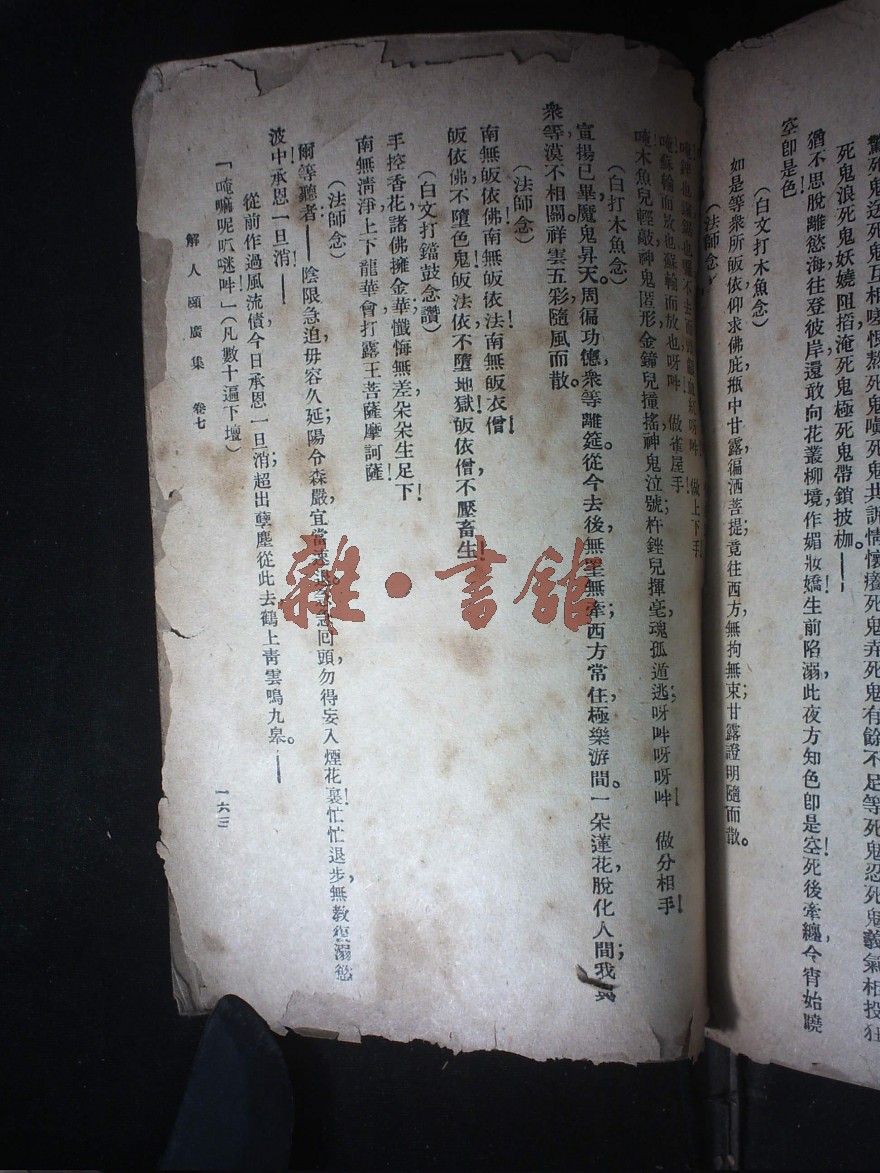 死鬼浪死鬼妖嬈阻搯淹死鬼極死鬼帶鎖披枷。——
猶不思脫離慾海往登彼岸還敢向花叢柳境作媚妝嬌生前陷溺此夜方知色卽是空死後牽纏今宵始曉
空卽是色!
(白文打木魚念)
如是等衆所皈依仰求佛庇瓶中甘露徧洒菩提竟往西方,無拘無束;甘露證明隨而散。
(法師念)
唵蘇輪而放也蘇輪而放也呀吽 做雀屋手!
唵木魚兒輕敲神鬼匿形,金鐘兒撞搖神鬼泣號;杵銼兒揮毫,魂孤遁逃;呀吽呀呀吽! 做分相手!
(白打木魚念)
宣揚已畢,魔鬼昇天。周徧功德,衆等離筵。從今去後,無罣無牽;西方常住,極樂游間。一朵蓮花,脫化人間;我與
衆等,漠不相關。祥雲五彩,隨風而散。
(法師念)
南無皈依佛!南無皈依法!南無皈衣僧!
皈依佛,不墮色鬼!皈法依,不墮地獄!皈依僧,不壓畜生!
(白文打鐺鼓念讚)
手控香花,諸佛擁金華,懺悔無差,朵朵朵生足下!
南無清淨上下龍華會打露王菩薩摩訶薩!
(法師念)
爾等聽者——陰限急迫,毋容久延,陽令森嚴,宜當速退。急急回頭,勿得妄入煙花裏!忙忙退步,無教復溺慾
波中!承恩一旦消!——
從前作過風流債,今日承恩一旦消;超出孽塵從此去,鶴上青雲鳴九皋。——
「唵嘛呢叭㗭吽」(凡數十遍下壇)
解人頤廣集 卷七
一六三
雜·書館